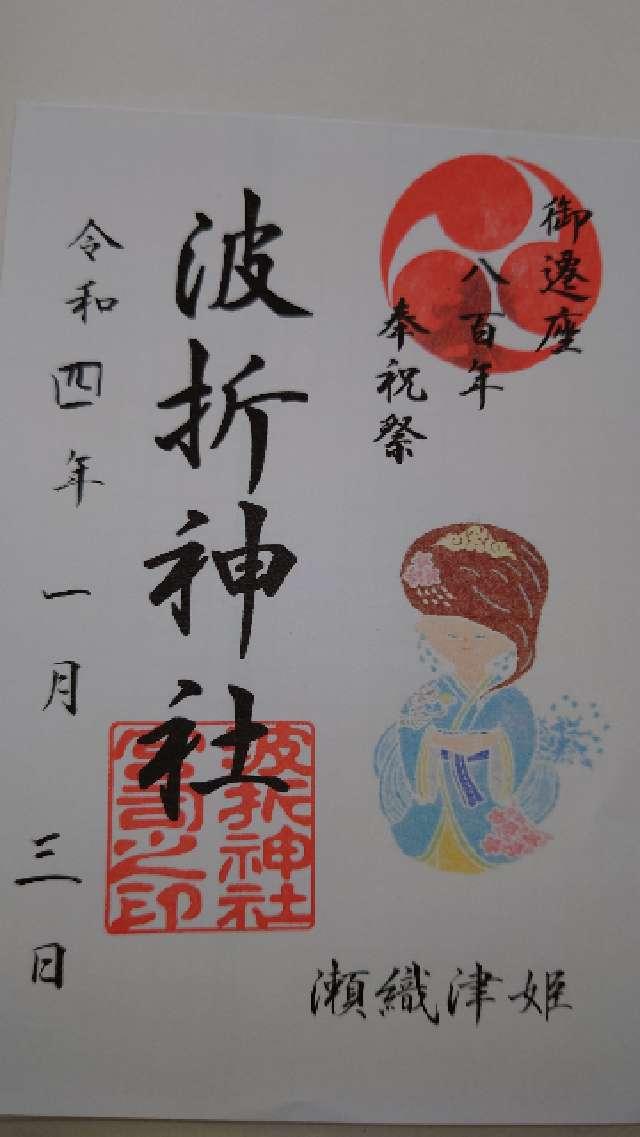 御遷座
八百年
奉祝祭
波折神社
波折神社
宮司之印
令和四年一月三日
瀬織津姫